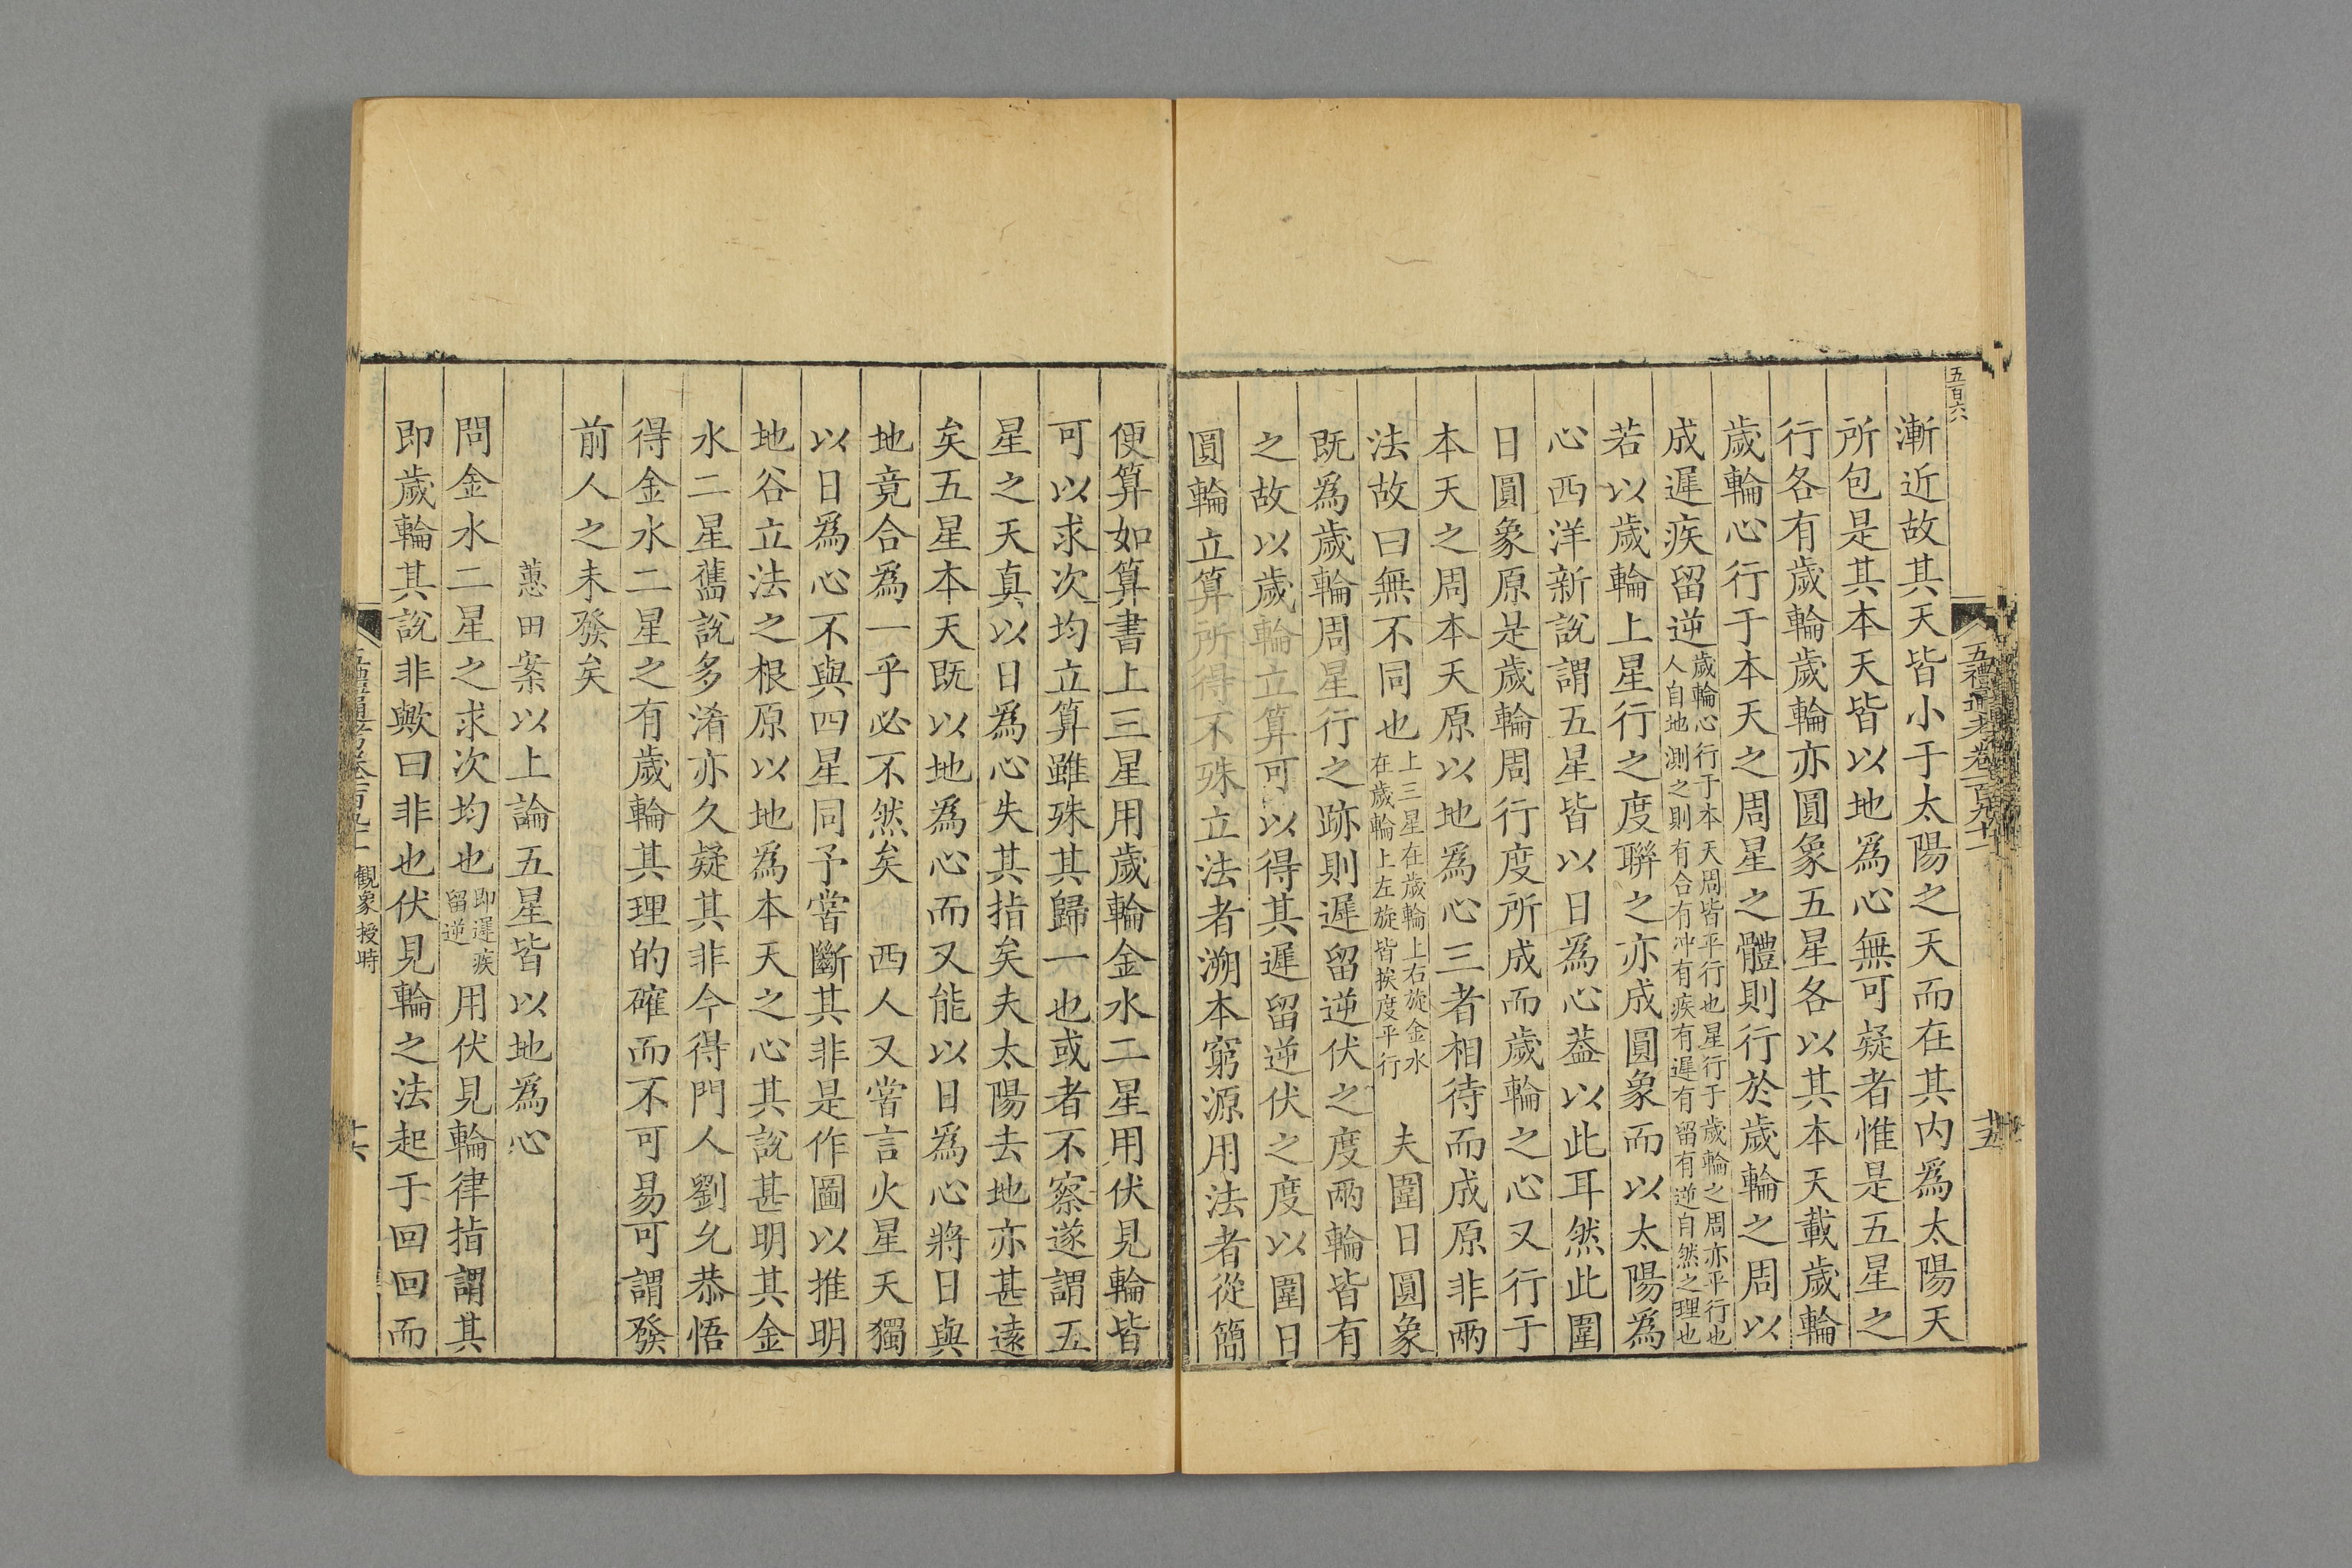 五百六
漸近故其天皆小于太陽之天而在其内爲太陽天
所包是其本天皆以地爲心無可疑者惟是五星之
行各有歲輪歲輪亦圓象五星各以其本天載歲輪
歲輪心行于本天之周星之體則行於歲輪之周以
成遲疾留逆歲輪心行于本天周皆平行也星行于歲輪之周亦平行也
人自地測之則有合有冲有疾有遲有留有逆自然之理也
若以歲輪上星行之度聯之亦成圓象而以太陽爲
心西洋新說謂五星皆以日爲心葢以此耳然此圍
日圓象原是歲輪周行度所成而歲輪之心又行于
本天之周本天原以地爲心三者相待而成原非兩
法故曰無不同也上三星在歲輪上右旋金水
在歲輪上左旋皆挨度平行
夫圍日圓象
既爲歲輪周星行之跡則遲留逆伏之度兩輪皆有
之故以歲輪立算可以得其遲留逆伏之度以圍日
圓輪立算所得不殊立法者溯本窮源用法者從簡
便算如算書上三星用歲輪金水二星用伏見輪皆
可以求次均立算雖殊其歸一也或者不察遂謂五
星之天真以日爲心失其指矣夫太陽去地亦甚遠
矣五星本天既以地爲心而又能以日爲心將日與
地竟合爲一乎必不然矣 西人又嘗言火星天獨
以日爲心不與四星同予嘗斷其非是作圖以推明
地谷立法之根原以地爲本天之心其說甚明其金
水二星舊說多淆亦久疑其非今得門人劉允恭悟
得金水二星之有歲輪其理的確而不可易可謂發
前人之未發矣
蕙田案以上論五星皆以地爲心
問金水二星之求次均也即遲疾
留逆
用伏見輪律指謂其
即歲輪其說非歟曰非也伏見輪之法起于回回而
觀象授時